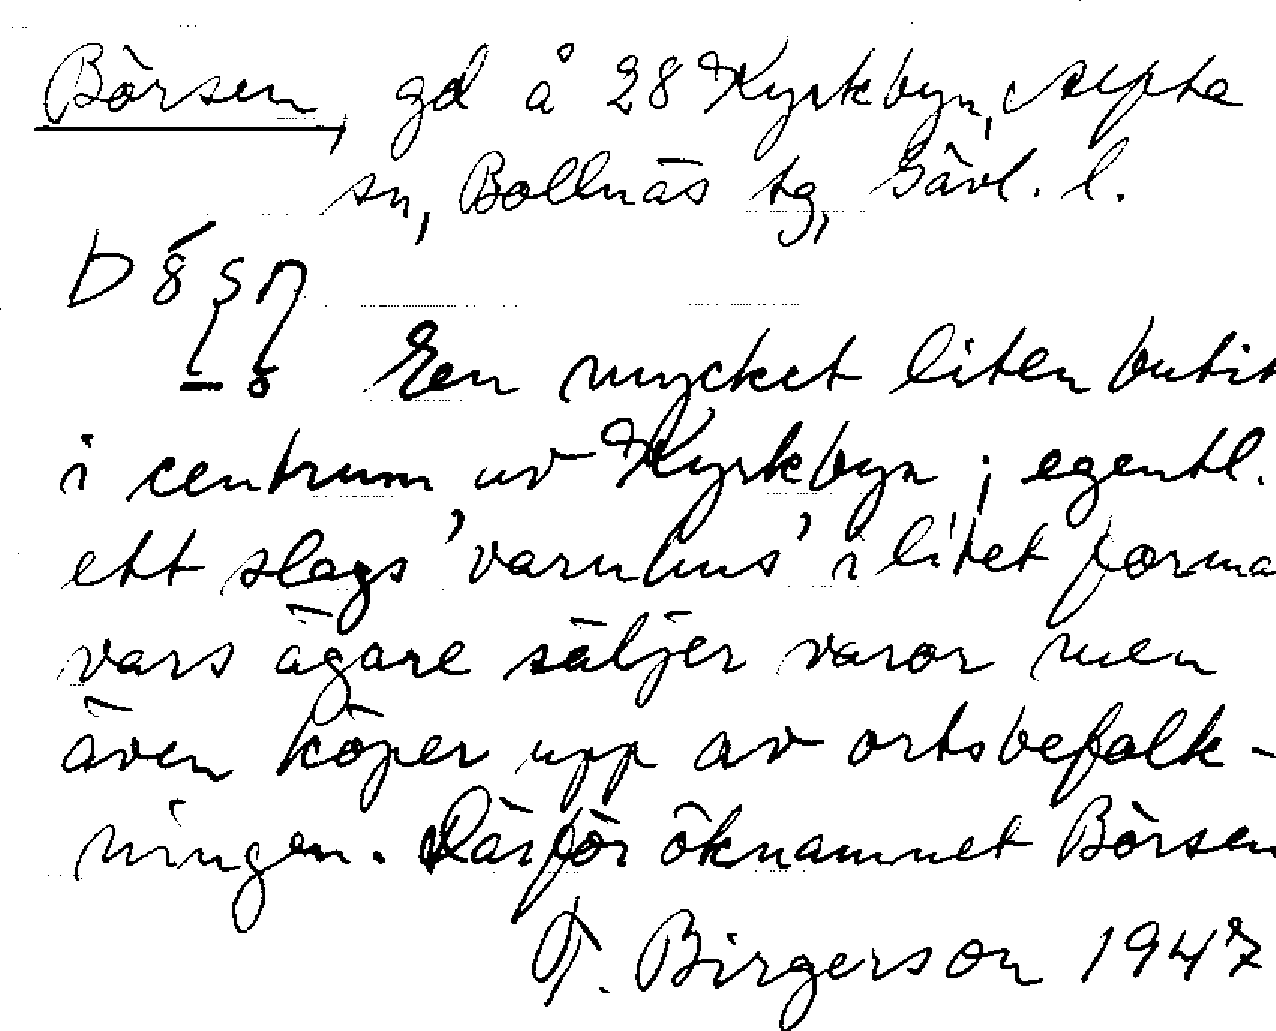 Börsen, gd å 28 Kyrkbyn, Alfta
sn, Bollnäs tg, Gävl. l.
En mycket liten butik
i centrum av Kyrkbyn; egentl.
ett slags 'varuhus' i litet forma
vars ägare säljer varor men
även köper upp av ortsbefolk-
ningen. Därför öknamnet Börsen
T. Birgerson 1947